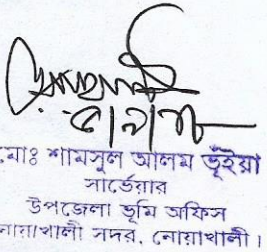 মোঃ শামসুল আলম ভূঁইয়া
সার্ভেয়ার
উপজেলা ভূমি অফিস
নোয়াখালী সদর, নোয়াখালী।